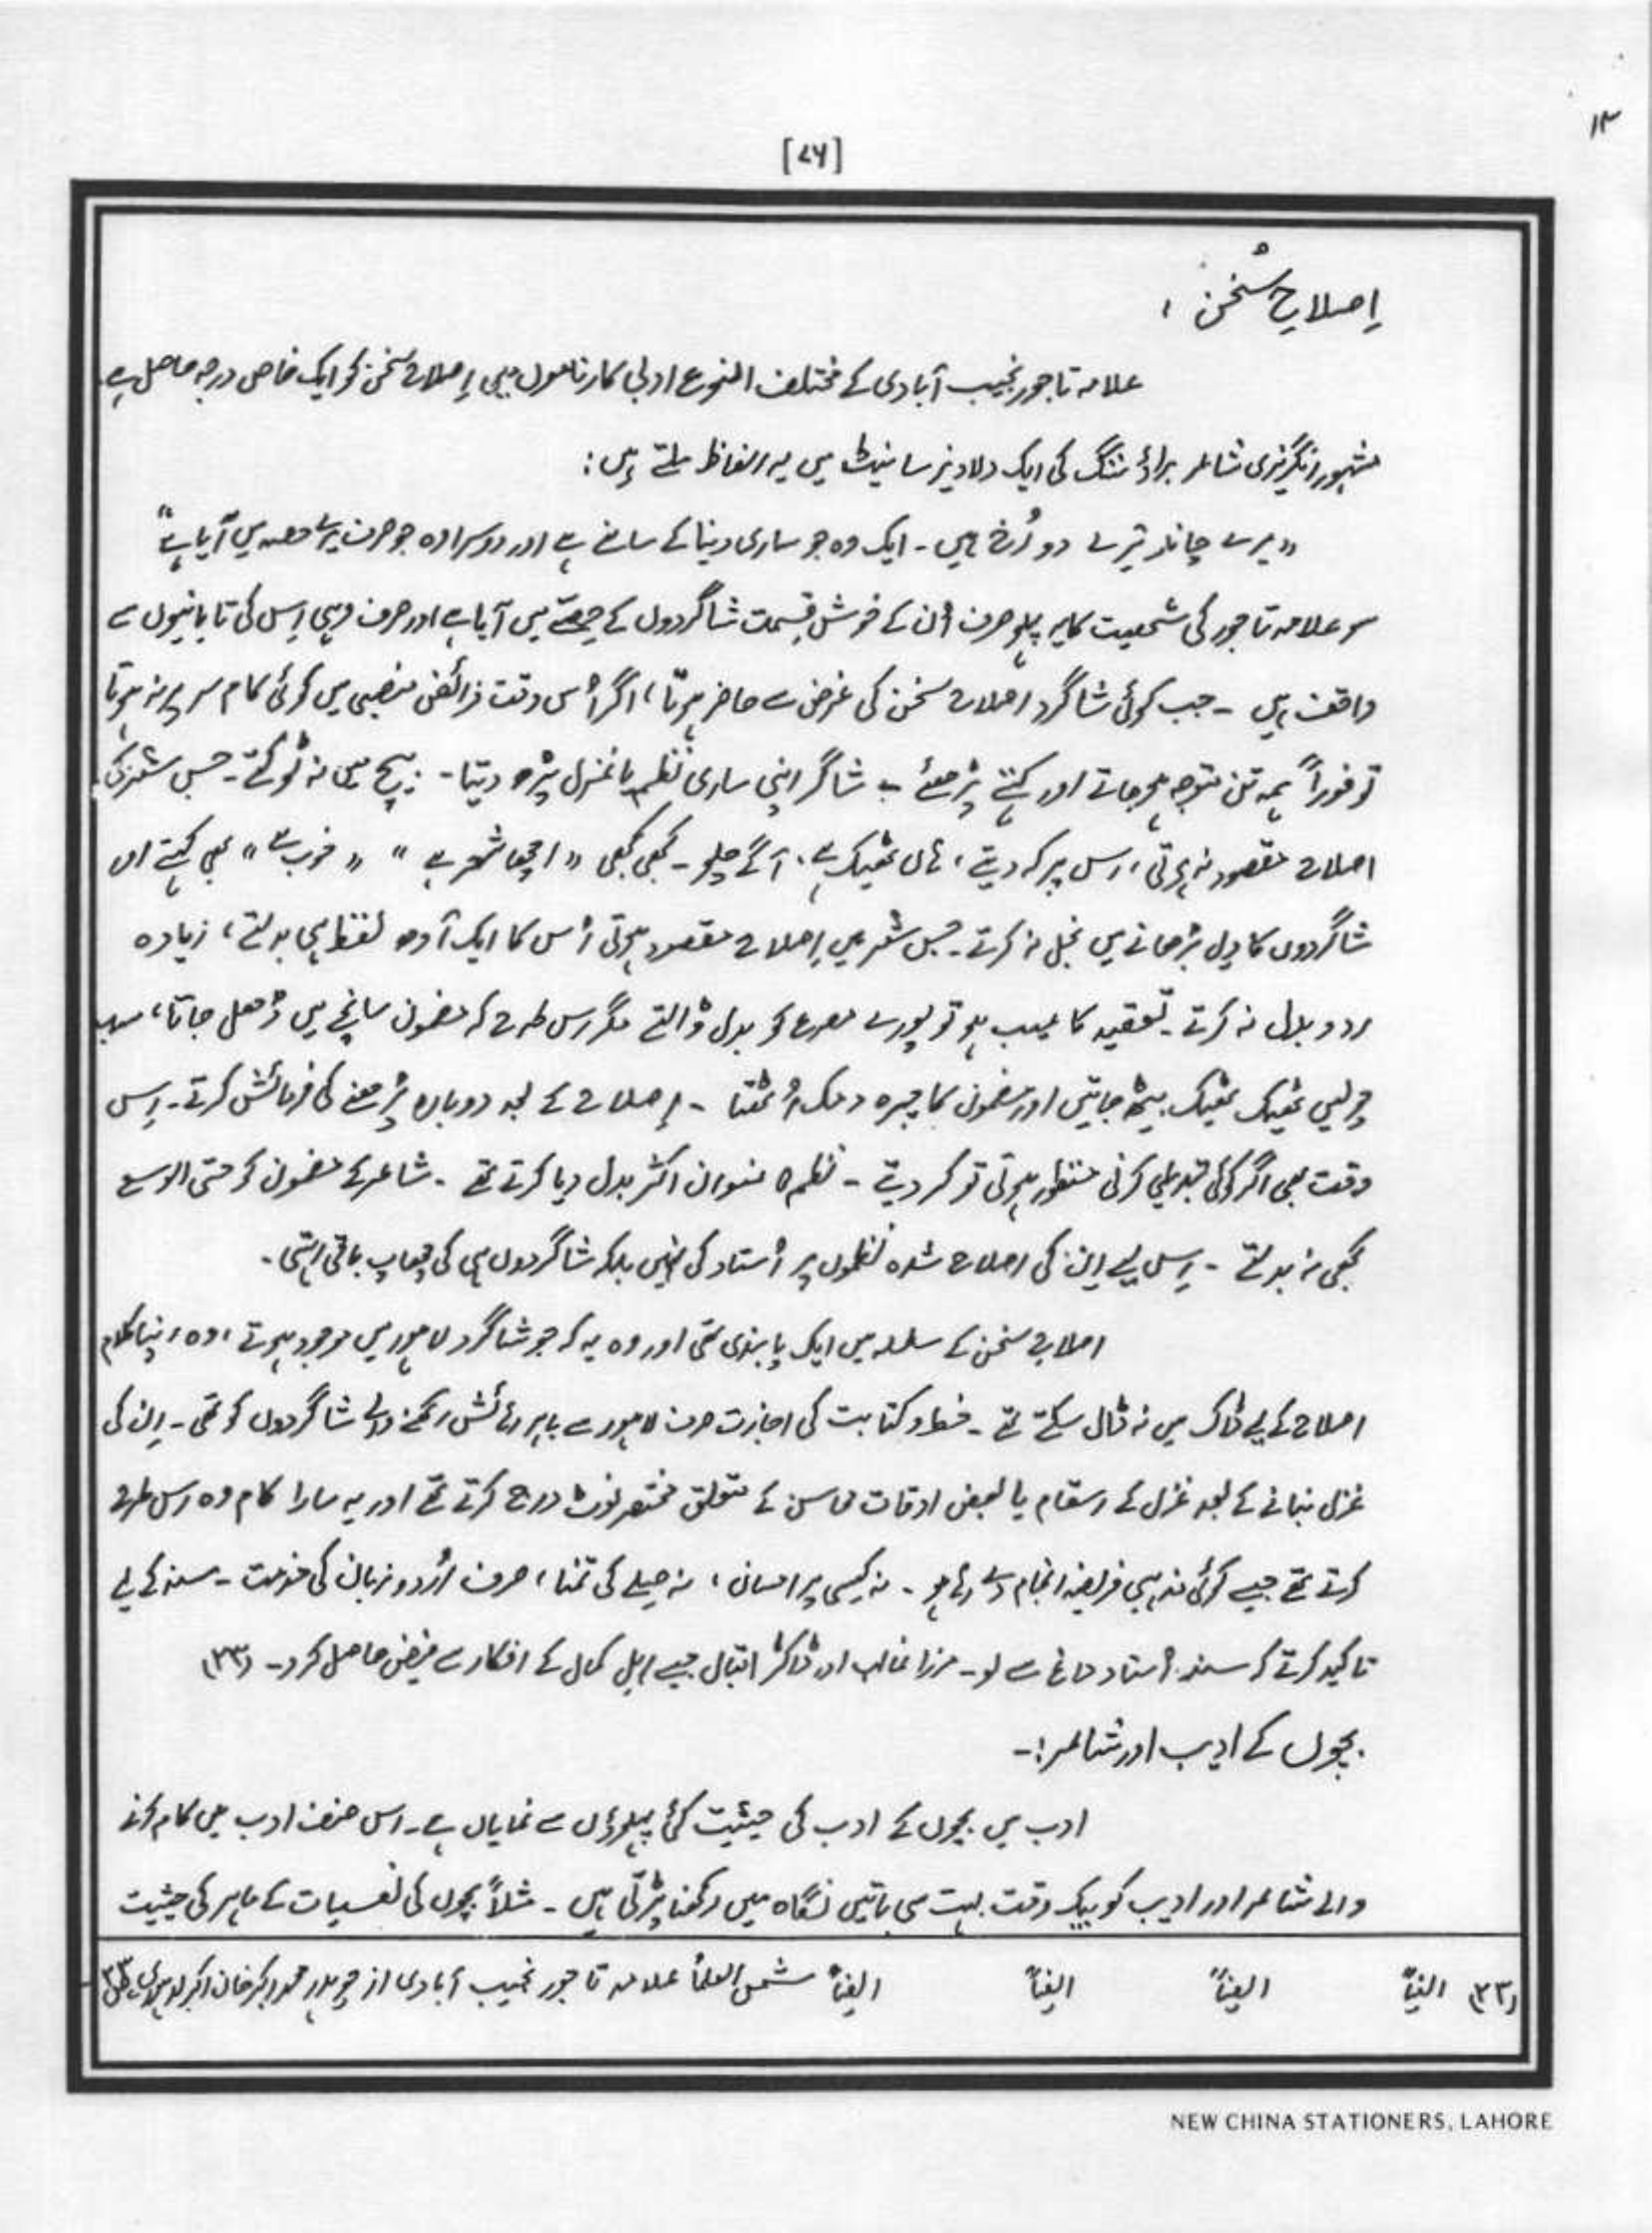 ۱۳
[۷۶]
اِصلاحِ سُخن :
علامہ تاجور نجیب آبادی کے مختلف النوع ادبی کارناموں میں اِصلاحِ سُخن کو ایک خاص درجہ حاصل ہے۔
مشہور انگریزی شاعر براؤننگ کی ایک دلاویز سانیٹ میں یہ الفاظ ملتے ہیں :
"میرے چاند تیرے دو رُخ ہیں ۔ ایک وہ جو ساری دنیا کے سامنے ہے اور دوسرا وہ جو صرف میرے حصہ میں آیا ہے"
سو علامہ تاجور کی شخصیت کا یہ پہلو صرف اُن کے خوش قِسمت شاگردوں کے حِصّے میں آیا ہے اور صرف وہی اِس کی تابانیوں سے
واقف ہیں ۔ جب کوئی شاگرد اصلاحِ سخن کی غرض سے حاضر ہوتا، اگر اُس وقت فرائضِ منصبی میں کوئی کام سر پر نہ ہوتا
تو فوراً ہمہ تن متوجہ ہو جاتے اور کہتے پڑھئے ۔ شاگر اپنی ساری نظم یا غزل پڑھ دیتا ۔ بیچ میں نہ ٹوکتے ۔ جس شعر کی
اصلاح مقصود نہ ہوتی، اس پر کہہ دیتے، ہاں ٹھیک ہے، آگے چلو ۔ کبھی کبھی "اچھا شعر ہے" "خوب ہے" بھی کہتے اس
شاگردوں کا دِل بڑھانے میں بخل نہ کرتے ۔ جِس شعر میں اِصلاح مقصود ہوتی اُس کا ایک آدھ لفظ ہی بدلتے، زیادہ
رد و بدل نہ کرتے ۔ تعقید کا عیب ہو تو پورے مصرع کو بدل ڈالتے مگر اس طرح کہ مضمون سانچے میں ڈھل جاتا، سب
چولیں ٹھیک ٹھیک بیٹھ جاتیں اور مضمون کا چہرہ دمک اُٹھتا ۔ اِصلاح کے بعد دوبارہ پڑھنے کی فرمائش کرتے ۔ اِس
وقت بھی اگر کوئی تبدیلی کرنی منظور ہوتی تو کر دیتے ۔ نظم کا عنوان اکثر بدل دیا کرتے تھے ۔ شاعر کے مضمون کو حتی الوسع
کبھی نہ بدلتے ۔ اِس لیے اِن کی اصلاح شدہ نظموں پر اُستاد کی نہیں بلکہ شاگردوں ہی کی چھاپ باقی رہتی ۔
اصلاحِ سخن کے سلسلہ میں ایک پابندی تھی اور وہ یہ کہ جو شاگرد لاہور میں موجود ہوتے، وہ اپنا کلام
اصلاح کے لیے ڈاک میں نہ ڈال سکتے تھے ۔ خط و کتابت کی اجازت صرف لاہور سے باہر رہائش رکھنے والے شاگردوں کو تھی ۔ اِن کی
غزل بنانے کے بعد غزل کے اسقام یا بعض اوقات محاسن کے متعلق مختصر نوٹ درج کرتے تھے اور یہ سارا کام وہ اس طرح
کرتے تھے جیسے کوئی مذہبی فریضہ انجام دے رہے ہو ۔ نہ کِسی پر احسان، نہ صِلے کی تمنا، صرف اُردو زبان کی خدمت ۔ سند کے لیے
تاکید کرتے کہ سند اُستاد داغ سے لو ۔ مرزا غالب اور ڈاکٹر اقبال جیسے اہلِ کمال کے افکار سے فیض حاصل کرو ۔ (۳۳)
بچوں کے ادیب اور شاعر :۔
ادب میں بچوں کے ادب کی حیثیت کئی پہلوؤں سے نمایاں ہے ۔ اس صنف ادب میں کام کرنے
والے شاعر اور ادیب کو بیک وقت بہت سی باتیں نگاہ میں رکھنا پڑتی ہیں ۔ مثلاً بچوں کی نفسیات کے ماہر کی حیثیت
(۳۳) ایضاً ایضاً ایضاً ایضاً شمس العلماً علامہ تاجور نجیب آبادی از چوہدری محمد اکبر خان اکبر لاہوری ص ۳۳
NEW CHINA STATIONERS, LAHORE